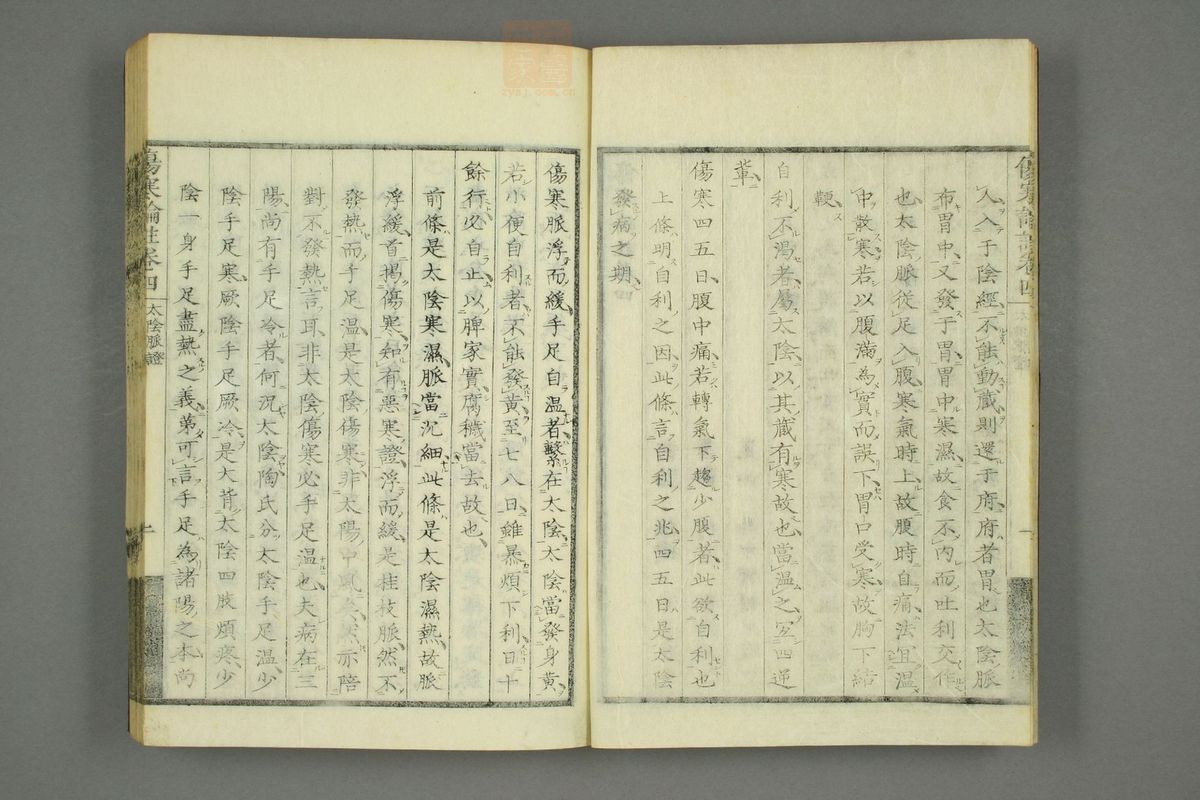 入入于陰經不能動蔵則還于府府者胃也太陰脈
布胃中又發于胃胃中寒濕故食不内而吐利交作
也太陰脈從足入腹寒氣時上故腹時自痛法宜温
中散寒若以腹滿為實而誤下胃口受寒故胸下結
鞕
自利不渴者屬太陰以其蔵有寒故也當温之宜四逆
輩
傷寒四五日腹中痛若轉氣下趨少腹者此欲自利也
上條明自利之因此條言自利之兆四五日是太陰
發病之期
傷寒脈浮而緩手足自温者繫在太陰太陰當發身黄
若小便自利者不能發黄至七八日雖暴煩下利日十
餘行必自止以脾家實腐穢當去故也
前條是太陰寒濕脈當沉細此條是太陰濕熱故脈
浮緩首揭傷寒知有惡寒證浮而緩是桂枝脈然不
發熱而手足温是太陰傷寒非太陽中風矣然亦暗
對不發熱言耳非太陰傷寒必手足温也夫病在三
陽尚有手足冷者何況太陰陶氏分太陰手足温少
陰手足寒厥陰手足厥冷是大背太陰四肢煩疼少
陰一身手足盡熱之義第可言手足為諸陽之本尚
傷寒論註卷四
太陰脈證